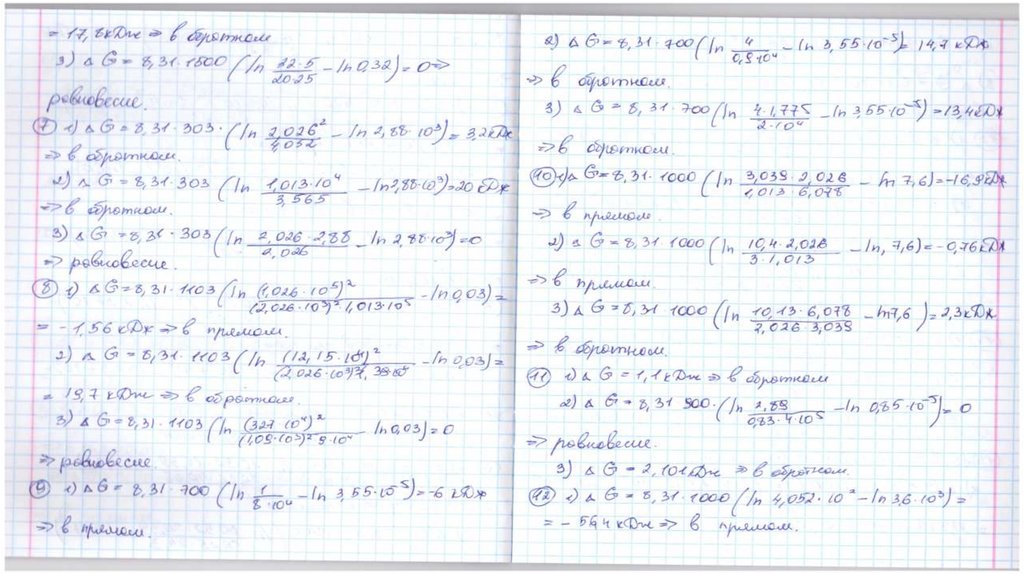 = 17,8 кДж ⇒ в обратном
3) ΔG = 8,31·1500 (ln 22·5/20·25 − ln 0,32) = 0 ⇒
равновесие.
⑦ 1) ΔG = 8,31·303·(ln 2,026²/4,052 − ln 2,88·10³) = 3,2 кДж
⇒ в обратном.
2) ΔG = 8,31·303 (ln 1,013·10⁴/3,565 − ln 2,88·10³) = 20 кДж
⇒ в обратном.
3) ΔG = 8,31·303 (ln 2,026·2,88/2,026 − ln 2,88·10³) = 0
⇒ равновесие.
⑧ 1) ΔG = 8,31·1103 (ln (1,026·10⁵)²/(2,026·10³)²·1,013·10⁵ − ln 0,03) =
= −1,56 кДж ⇒ в прямом.
2) ΔG = 8,31·1103 (ln (12,15·10⁴)²/(2,026·10³)² − ln 0,03) =
= 19,7 кДж ⇒ в обратном.
3) ΔG = 8,31·1103 (ln (327·10⁴)²/(1,09·10³)²·9·10⁴ − ln 0,03) = 0
⇒ равновесие.
⑨ 1) ΔG = 8,31·700 (ln 1/8·10⁴ − ln 3,55·10⁻⁵) = −6 кДж
⇒ в прямом.
2) ΔG = 8,31·700 (ln 4/0,9·10⁴ − ln 3,55·10⁻⁵) = 14,7 кДж
⇒ в обратном.
3) ΔG = 8,31·700 (ln 4·1,775/2·10⁴ − ln 3,55·10⁻⁵) = 13,4 кДж
⇒ в обратном.
⑩ 1) ΔG = 8,31·1000 (ln 3,039·2,026/1,013·6,078 − ln 7,6) = −16,9 кДж
⇒ в прямом.
2) ΔG = 8,31·1000 (ln 10,4·2,026/3·1,013 − ln, 7,6) = −0,76 кДж
⇒ в прямом.
3) ΔG = 8,31·1000 (ln 10,13·6,078/2,026·3,039 − ln 7,6) = 2,3 кДж
⇒ в обратном.
⑪ 1) ΔG = 1,1 кДж ⇒ в обратном
2) ΔG = 8,31·900·(ln 2,89/0,83·4·10⁵ − ln 0,85·10⁻⁵) = 0
⇒ равновесие.
3) ΔG = 2,101 кДж ⇒ в обратном.
⑫ 1) ΔG = 8,31·1000 (ln 4,052·10² − ln 3,6·10³) =
= −56,4 кДж ⇒ в прямом.